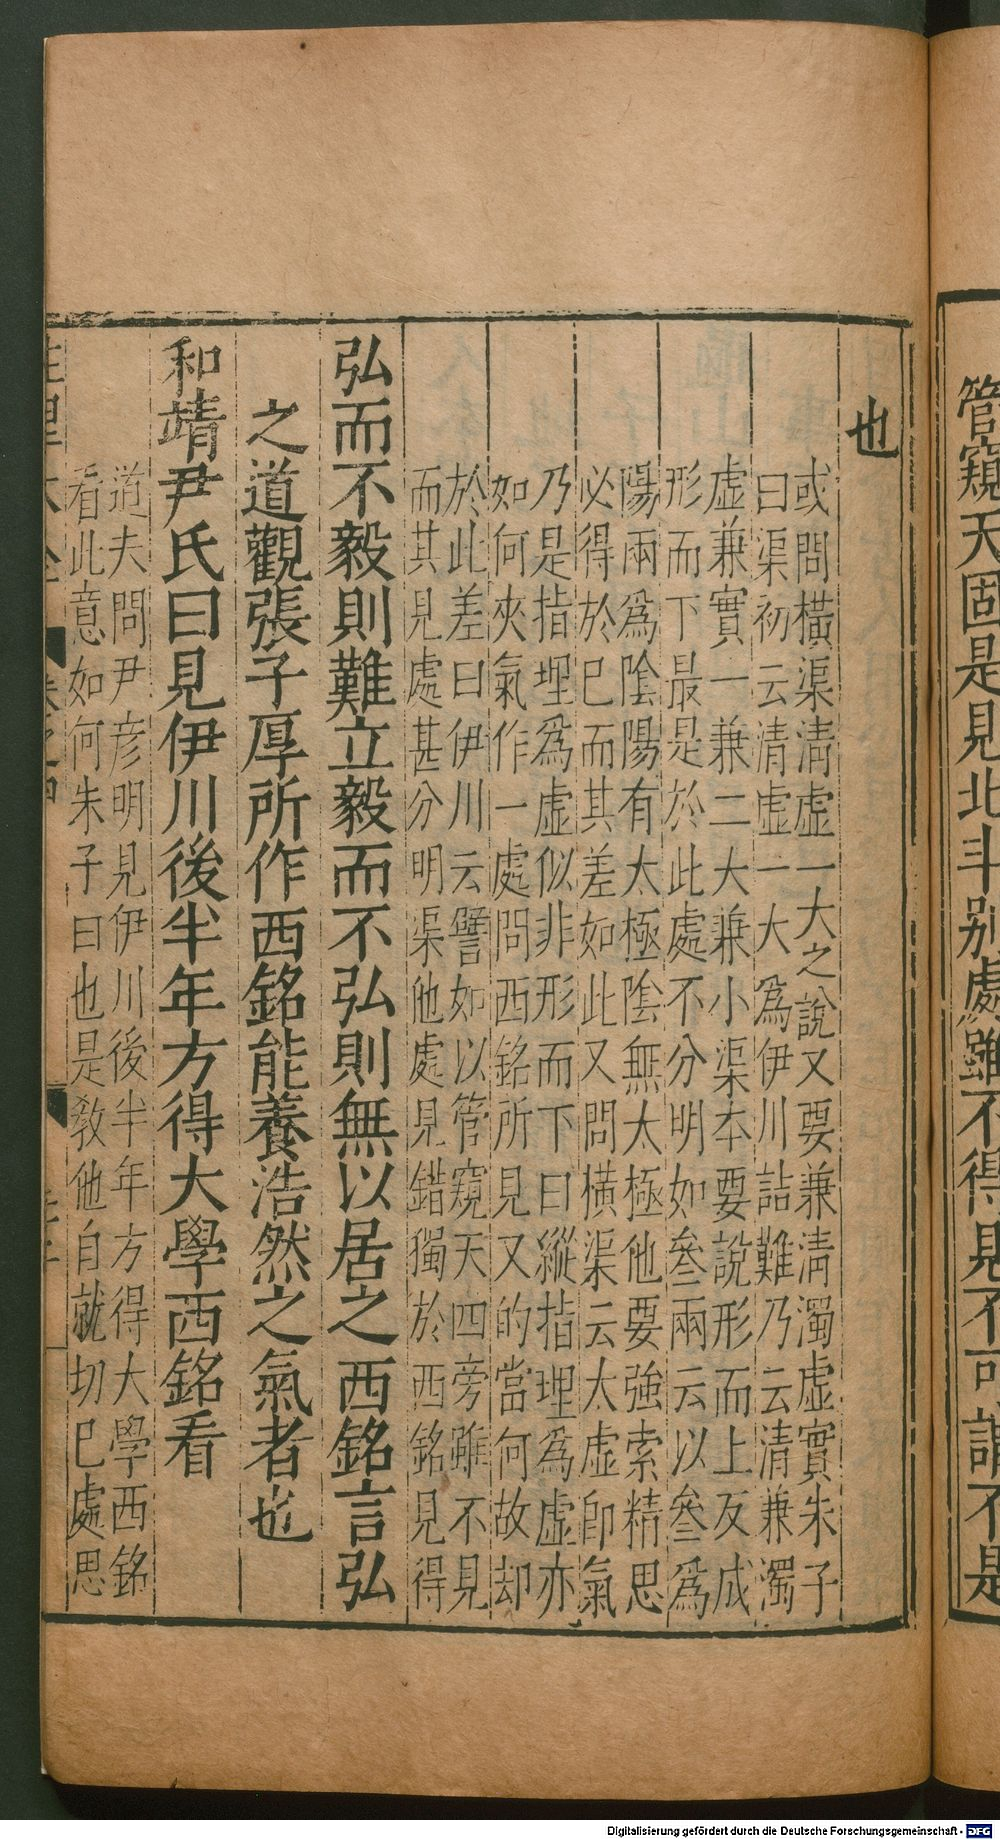 管窺天固是見北斗別處雖不得見不可謂不是
也
或問橫渠淸虛一大之說又要兼淸濁虛實朱子
曰渠初云清虛一大爲伊川詰難乃云清兼濁
虛兼實一兼二大兼小渠夲要說形而上反成
形而下最是於此處不分明如叅兩云以叅爲
陽兩爲陰陽有太極陰無太極他要強索精思
必得於已而其差如此又問橫渠云太虛卽氣
乃是指理爲虛似非形而下曰縱指理爲虛亦
如何夾氣作一處問西銘所見又的當何故却
於此差曰伊川云譬如以管窺天四旁雖不見
而其見處甚分明渠他處見錯獨於西銘見得
弘而不毅則難立毅而不弘則無以居之西銘言弘
之道觀張子厚所作西銘能養浩然之氣者也
和靖尹氏曰見伊川後半年方得大學西銘看
道夫問尹彦明見伊川後半年方得大學西銘
看此意如何朱子曰也是敎他自就切已處思
Digitalisierung gefördert durch die Deutsche Forschungsgemeinschaft - DFG